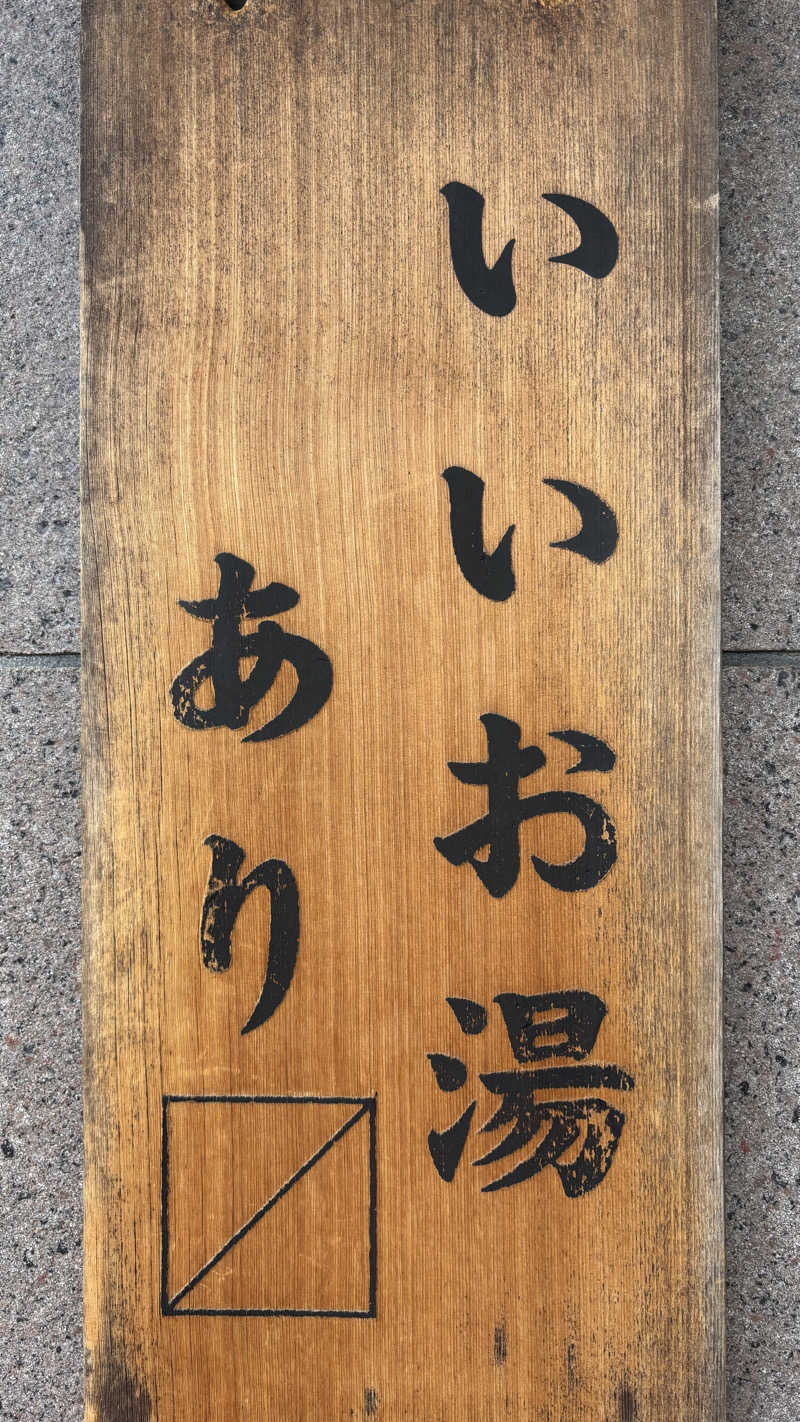 いいお湯
あり〼